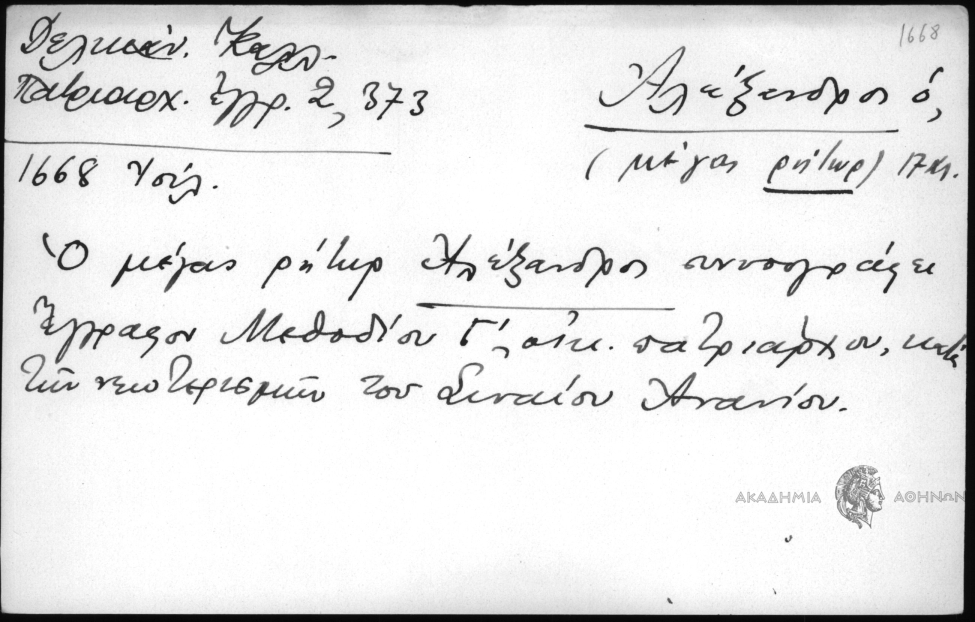 1668
Δελικάν. Καλλ.
Πατριαρχ. Ἔγγρ. 2, 373
Ἀλέξανδρος ὁ,
(μέγας ρήτωρ) 17 αἰ.
1668
Ὁ μέγας ρήτωρ Ἀλέξανδρος συνυπογράφει
ἔγγραφον Μεθοδίου Γ', οἰκ. πατριάρχου, κατὰ
τῶν νεωτερισμῶν τοῦ Σιναίου Ἀνανίου.
ΑΚΑΔΗΜΙΑ ΑΘΗΝΩΝ